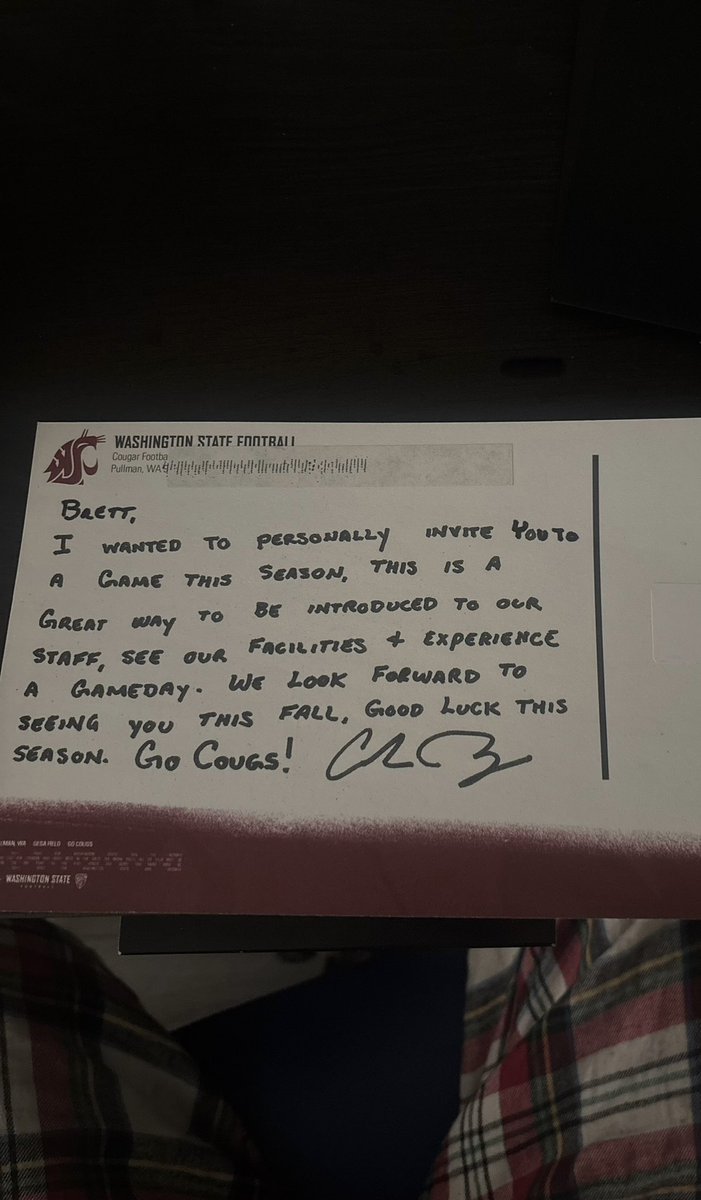 WASHINGTON STATE FOOTBALL
Cougar Footba
Pullman, WA
BRETT,
I WANTED TO PERSONALLY INVITE YOU TO
A GAME THIS SEASON, THIS IS A
GREAT WAY TO BE INTRODUCED TO OUR
STAFF, SEE OUR FACILITIES + EXPERIENCE
A GAMEDAY. WE LOOK FORWARD TO
SEEING YOU THIS FALL, GOOD LUCK THIS
SEASON. GO COUGS!
GESA FIELD GO COUGS
WASHINGTON STATE
FOOTBALL